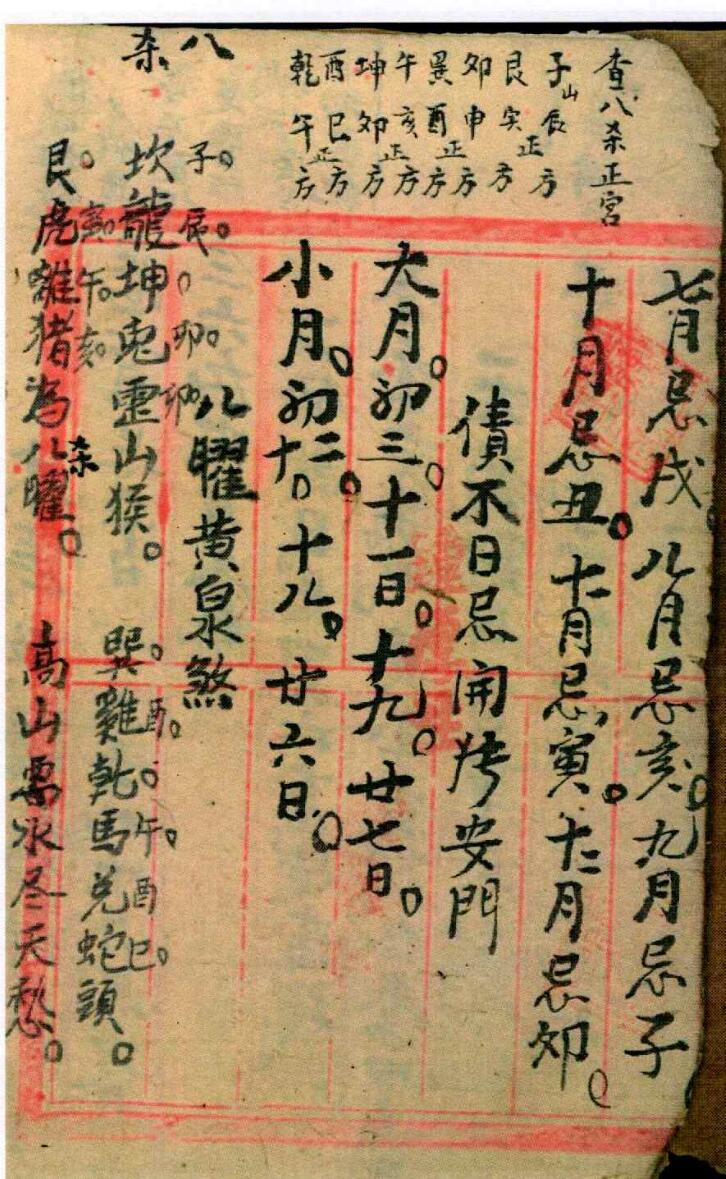 查八杀正宮
子山辰正方
艮寅正方
卯申正方
巽酉正方
午亥正方
坤卯正方
酉巳正方
乾午方
七月忌戌。八月忌亥。九月忌子
十月忌丑。十一月忌寅。十二月忌卯。
債不日忌開 安門
大月。初三。十一日。十九。廿七日。
小月。初二。初十。十八。廿六日。
八曜黄泉煞
八杀
子。辰。卯。卯 酉。午。酉巳。
坎龍坤兎震山猴。巽。雞乾。馬兑蛇頭。
寅。午。亥
艮。虎離猪為八曜杀。高山要水尽天愁。